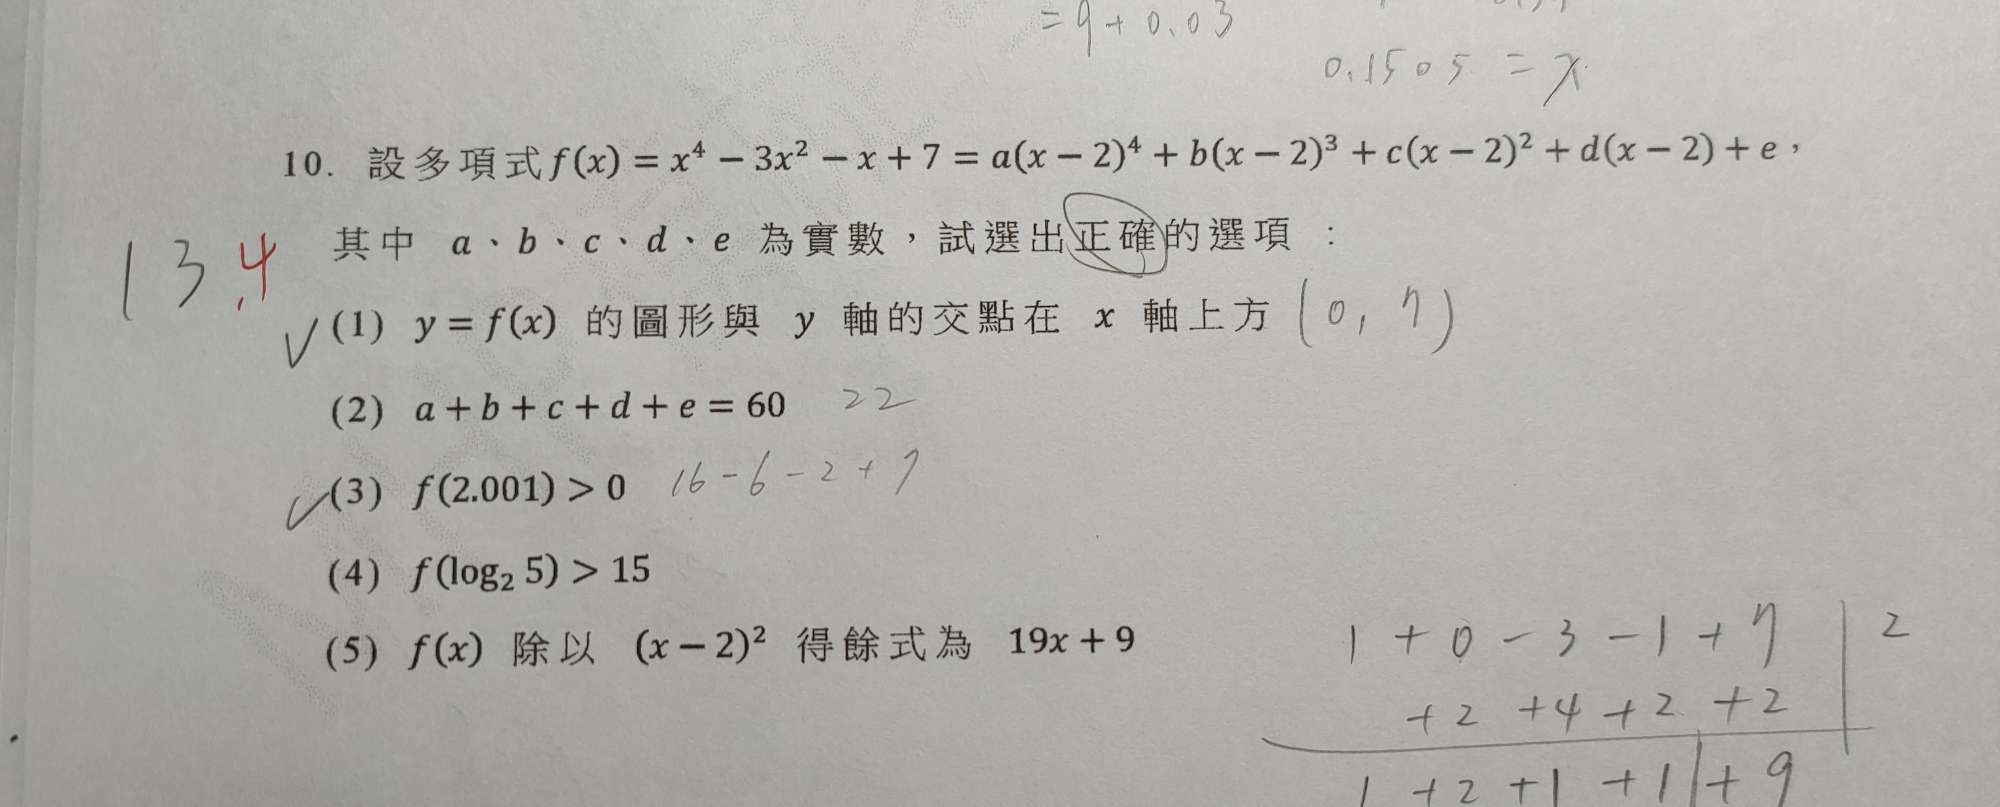 =9+0.03
0.1505 = x
10. 設多項式f(x) = x⁴ − 3x² − x + 7 = a(x − 2)⁴ + b(x − 2)³ + c(x − 2)² + d(x − 2) + e，
其中 a、b、c、d、e 為實數，試選出正確的選項：
13.4
(1) y = f(x) 的圖形與 y 軸的交點在 x 軸上方 (0, 7)
(2) a + b + c + d + e = 60 22
(3) f(2.001) > 0 16-6-2+7
(4) f(log₂ 5) > 15
(5) f(x) 除以 (x − 2)² 得餘式為 19x + 9
1+0-3-1+7 | 2
+2 +4 +2 +2
1 +2 +1 +1 | +9